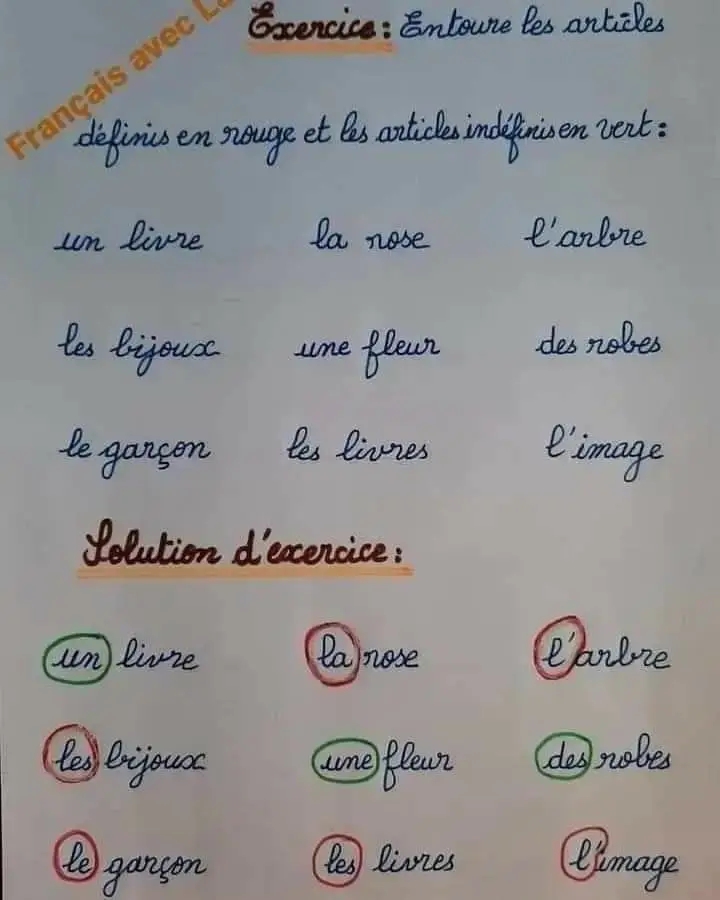 Français avec
Exercice : Entoure les articles
définis en rouge et les articles indéfinis en vert :
un livre la rose l'arbre
les bijoux une fleur des robes
le garçon les livres l'image
Solution d'exercice :
un livre la rose l'arbre
les bijoux une fleur des robes
le garçon les livres l'image